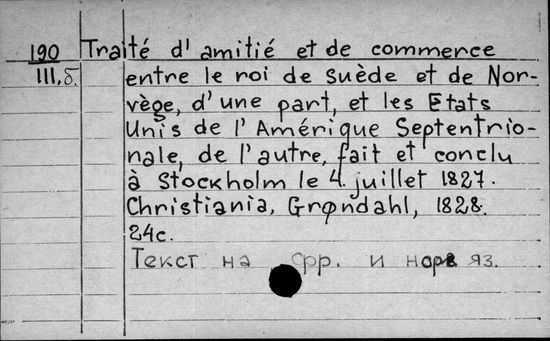 190 Traité d'amitié et de commerce
III,δ. entre le roi de Suède et de Nor-
vège, d'une part, et les Etats
Unis de l'Amérique Septentrio-
nale, de l'autre, fait et conclu
à Stockholm le 4 juillet 1827.
Christiania, Grøndahl, 1828.
24c.
Текст на фр. и норв яз.